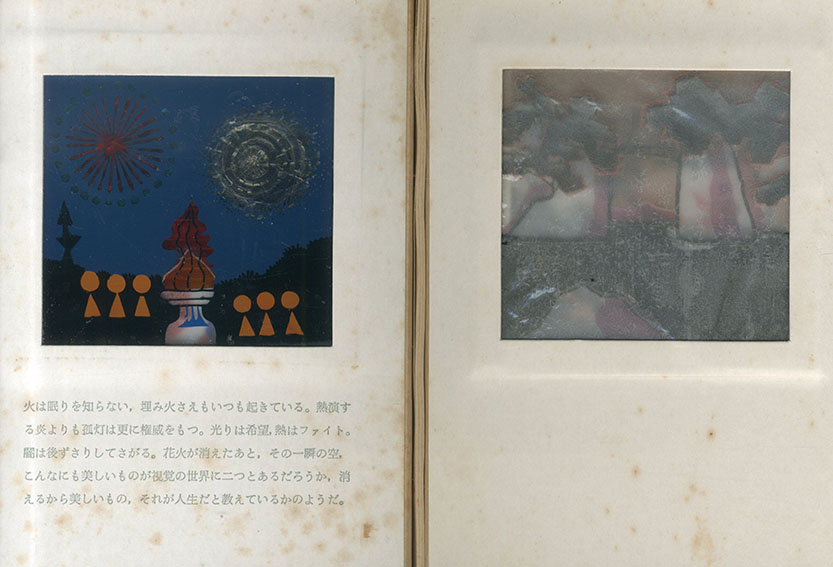 火は眠りを知らない，埋み火さえもいつも起きている。熱演す
る炎よりも孤灯は更に権威をもつ。光りは希望，熱はファイト。
闇は後ずさりしてさがる。花火が消えたあと，その一瞬の空，
こんなにも美しいものが視覚の世界に二つとあるだろうか，消
えるから美しいもの，それが人生だと教えているかのようだ。